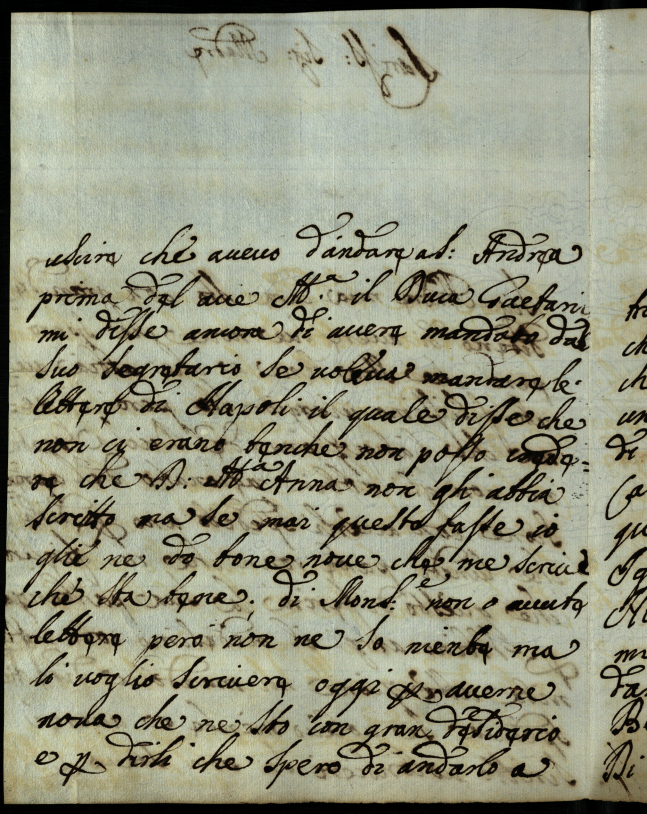 uscire che avevo d'andare a S: Andrea
prima del ave M.ª il Duca Gaetani
mi disse ancora di avere mandato dal
suo segretario se voleva mandare le
lettere di Napoli il quale disse che
non ci erano benche non posso crede=
re che D: M.ª Anna non gli abbia
scritto ma se mai questo fosse io
glie ne do bone nove che me scrive
che sta bene; di Mons:re non o avute
lettere però non ne so niente ma
li voglio scrivere oggi p averne
nova che ne sto con gran desiderio
e p dirli che spero di andarlo a